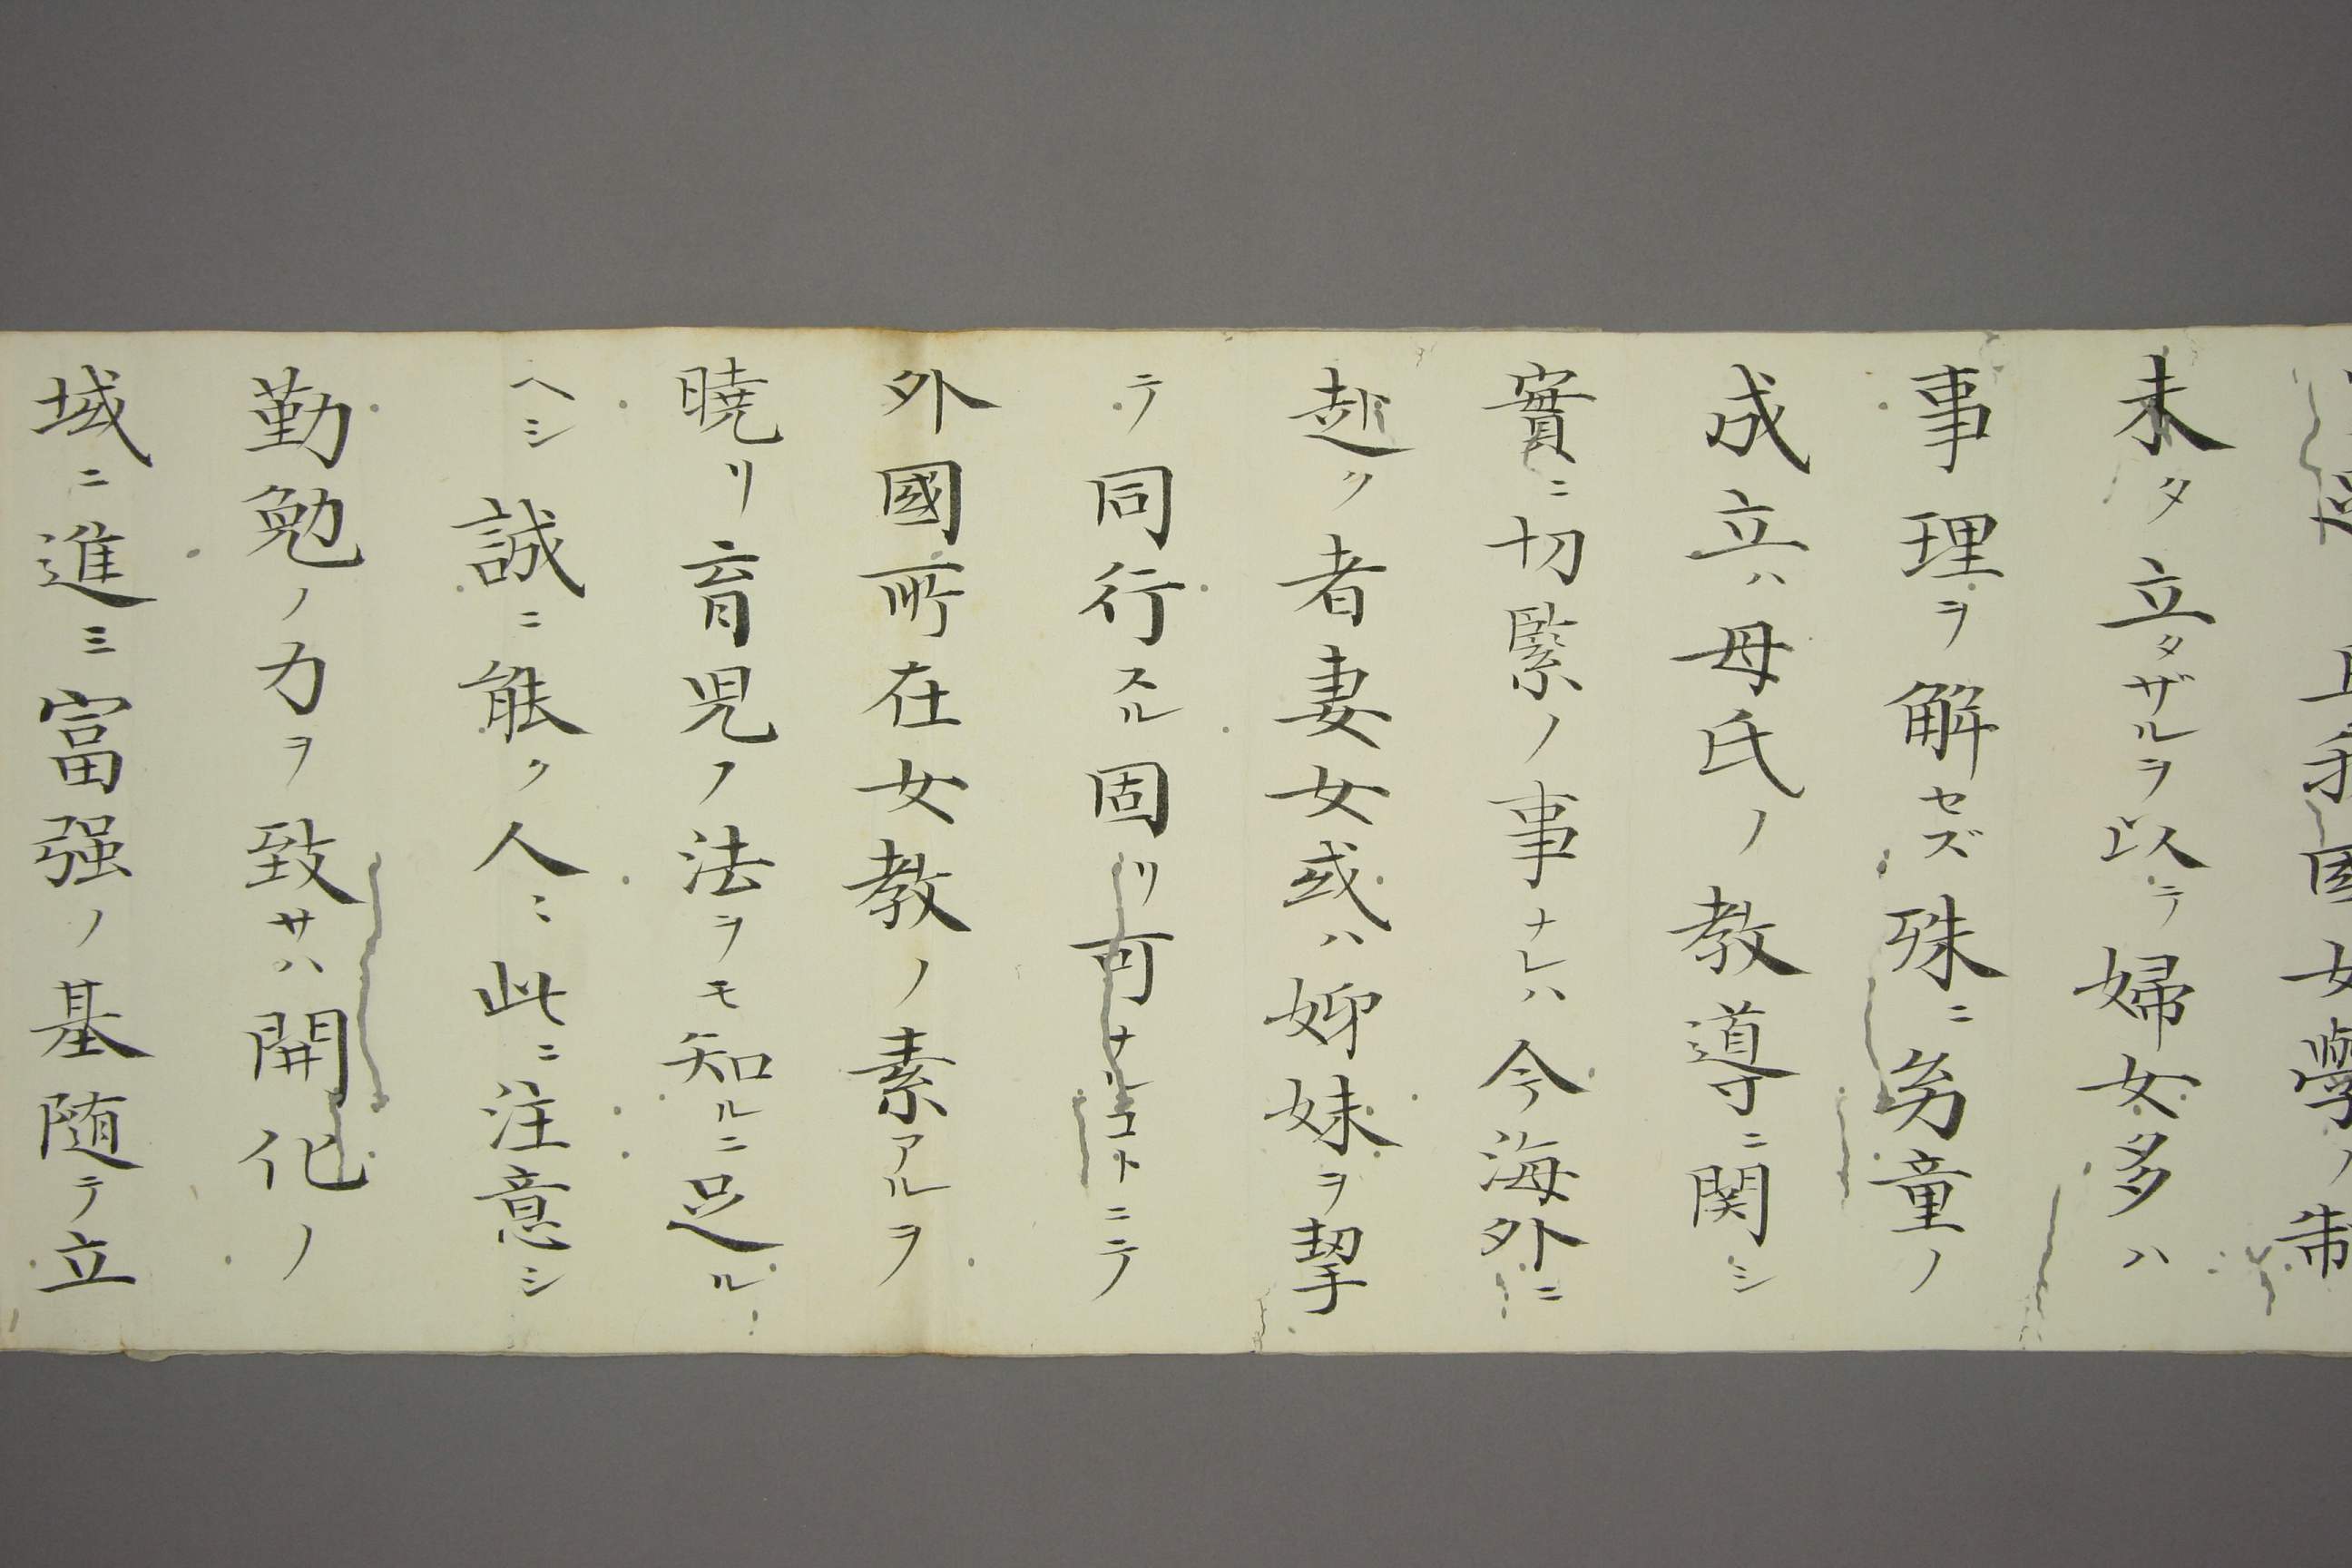 且我國女學ノ制
未タ立タザルヲ以テ婦女多ハ
事理ヲ解セズ殊ニ㓜童ノ
成立ハ母氏ノ教導ニ関シ
實ニ切緊ノ事ナレハ今海外ニ
赴ク者妻女或ハ姉妹ヲ挈
テ同行スル固リ可ナルコトニテ
外國所在女教ノ素アルヲ
暁リ育児ノ法ヲモ知ルニ足ル
ヘシ誠ニ能ク人ニ此ニ注意シ
勤勉ノ力ヲ致サハ開化ノ
域ニ進ミ富强ノ基随テ立